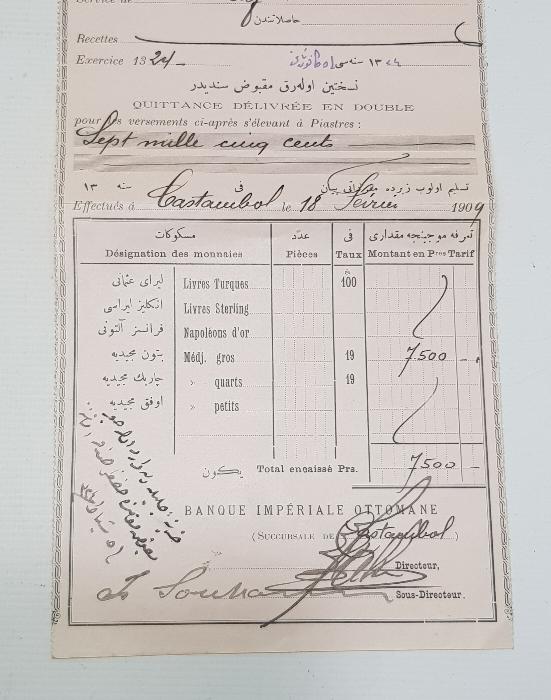 حاصلاتندن
Recettes
Exercice 1324 ١٣٢٤ سنه سى
نسختين اوله رق مقبوض سنديدر
QUITTANCE DÉLIVRÉE EN DOUBLE
pour les versements ci-après s'élevant à Piastres :
Sept mille cinq cents
تسليم اولوب زيرده فى سنه ١٣
Effectués à Castambol le 18 Février 1909
مسكوكات عدد فى تعرفه موجبنجه مقدارى
Désignation des monnaies Pièces Taux Montant en Pres Tarif
ليراى عثمانى Livres Turques 100
انكليز ليراسى Livres Sterling
فرانسز آلتونى Napoléons d'or
بتون مجيديه Médj. gros 19 7.500 —
چاريك مجيديه » quarts 19
اوفق مجيديه » petits
يكون Total encaissé Prs. 7500 —
BANQUE IMPÉRIALE OTTOMANE
(SUCCURSALE DE Castambol)
Directeur,
Sous-Directeur.